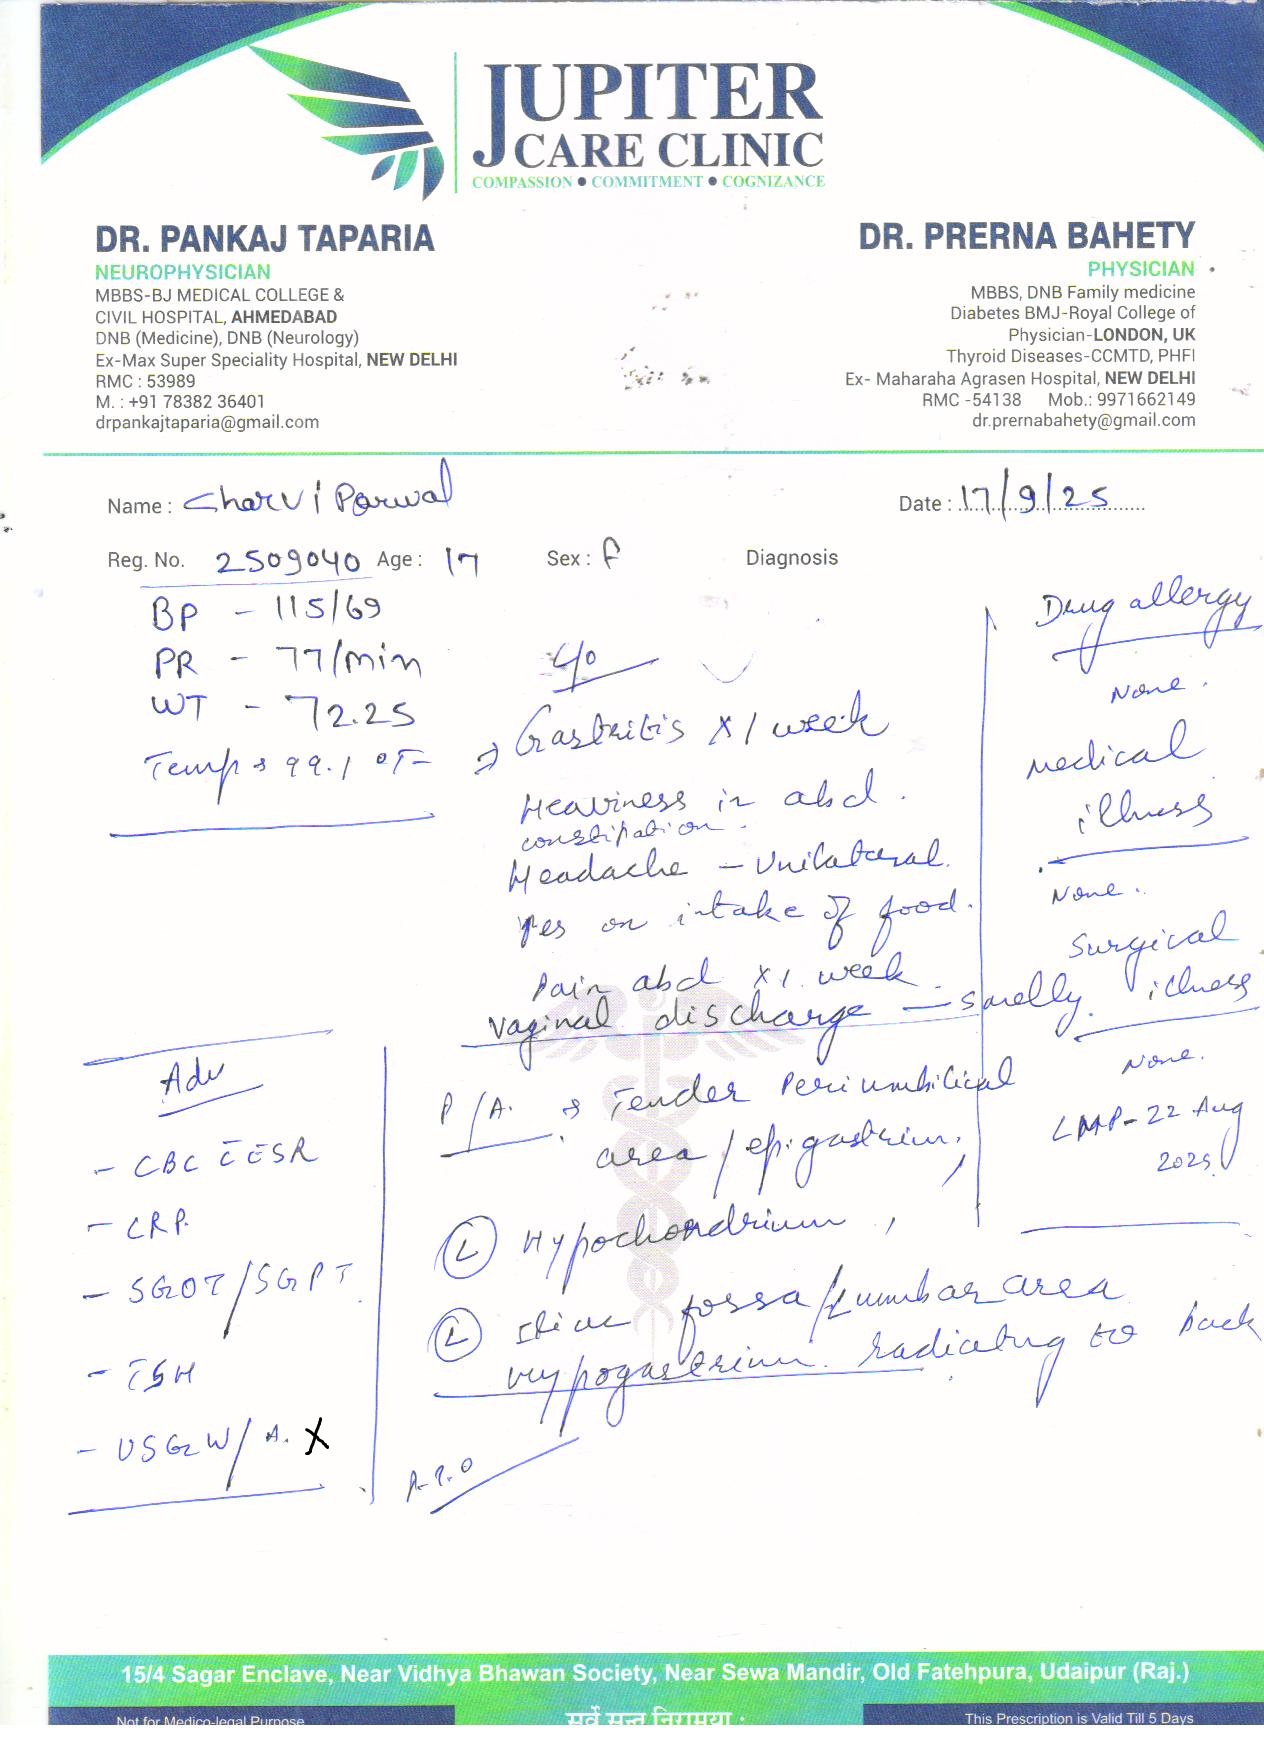 JUPITER
CARE CLINIC
COMPASSION ● COMMITMENT ● COGNIZANCE
DR. PANKAJ TAPARIA
NEUROPHYSICIAN
MBBS-BJ MEDICAL COLLEGE &
CIVIL HOSPITAL, AHMEDABAD
DNB (Medicine), DNB (Neurology)
Ex-Max Super Speciality Hospital, NEW DELHI
RMC : 53989
M. : +91 78382 36401
drpankajtaparia@gmail.com
DR. PRERNA BAHETY
PHYSICIAN
MBBS, DNB Family medicine
Diabetes BMJ-Royal College of
Physician-LONDON, UK
Thyroid Diseases-CCMTD, PHFI
Ex- Maharaha Agrasen Hospital, NEW DELHI
RMC -54138 Mob.: 9971662149
dr.prernabahety@gmail.com
Name : Charvi Porwal
Date : 17/9/25
Reg. No. 2509040 Age : 17 Sex : F Diagnosis
BP - 115/69
PR - 77/min
WT - 72.25
Temp → 99.1 °F
C/o
→ Gastritis x 1 week
Heaviness in abd.
constipation.
Headache - Unilateral.
on intake of food.
Pain abd x 1 week
Vaginal discharge - smelly.
Drug allergy
None.
Medical
illness
None.
Surgical
illness
None.
LMP - 22 Aug
2025
P/A. → Tender Periumbilical
area / epigastrium,
(L) Hypochondrium,
(L) Iliac fossa/Lumbar area
Hypogastrium. radiating to back
P.T.O
Adv
- CBC c̄ ESR
- CRP.
- SGOT/SGPT
- TSH
- USG W/A. X
15/4 Sagar Enclave, Near Vidhya Bhawan Society, Near Sewa Mandir, Old Fatehpura, Udaipur (Raj.)
Not for Medico-legal Purpose
सर्वे सन्तु निरामया :
This Prescription is Valid Till 5 Days